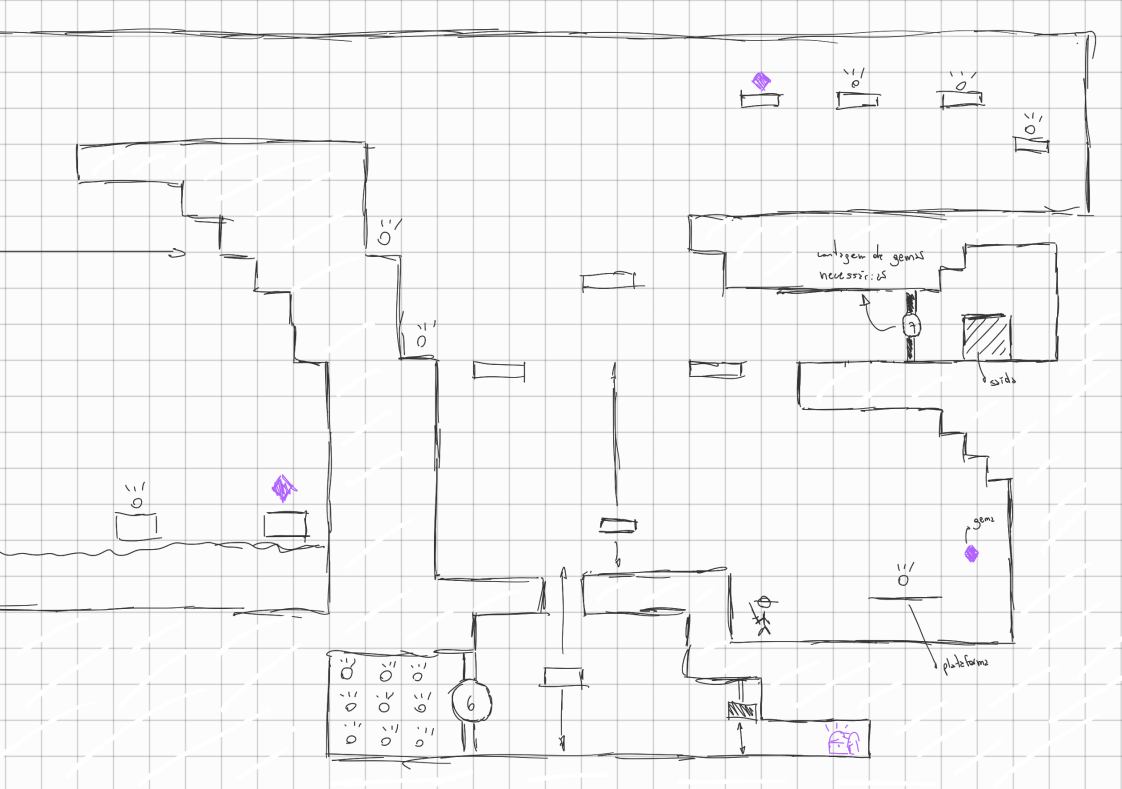 contagem de gemas
necessárias
7
saída
gema
plataforma
6